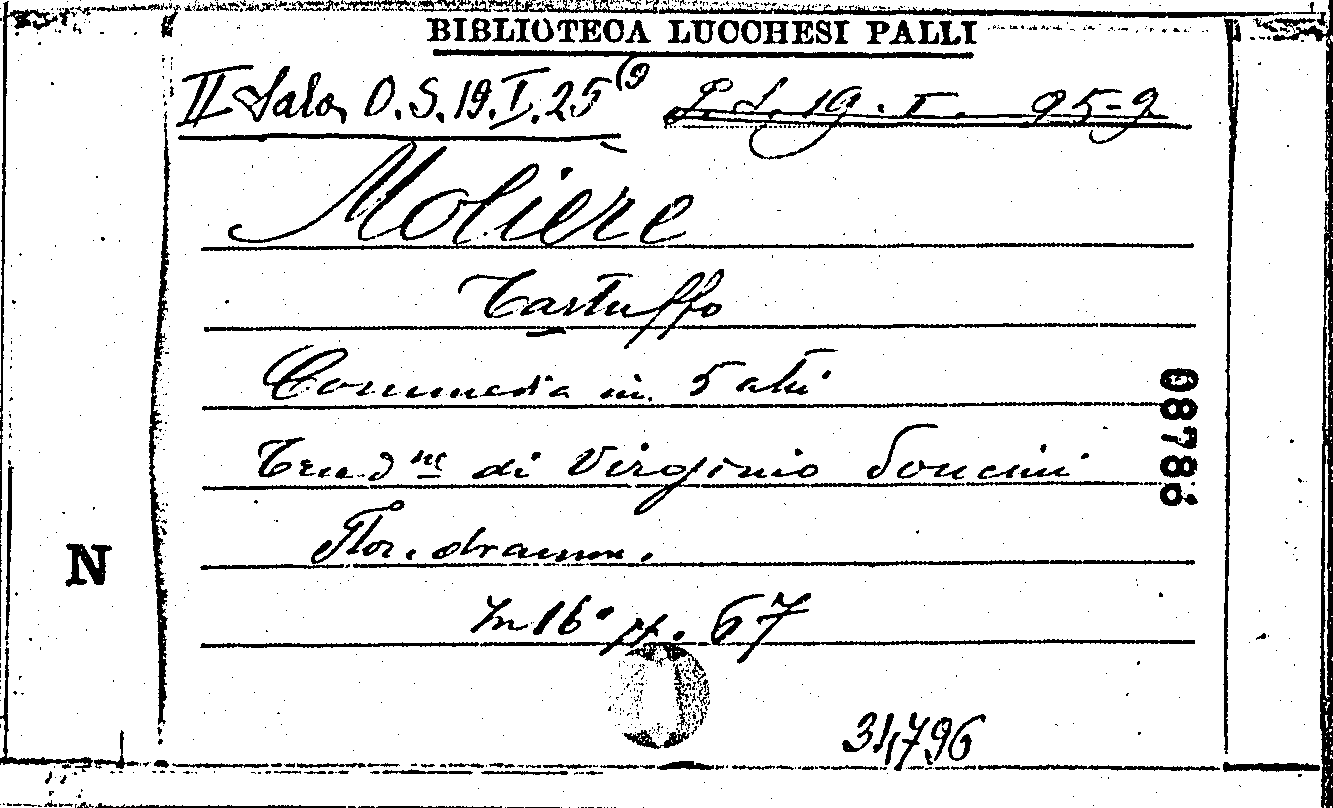 BIBLIOTECA LUCCHESI PALLI
II Sala O.S.19.I.25(9 P.S. 19.I. 25-9
Molière
Tartuffo
Commedia in 5 atti
Trad ne di Virginio Soncini
Flor. dramm.
08786
N
In 16° pp. 67
34796